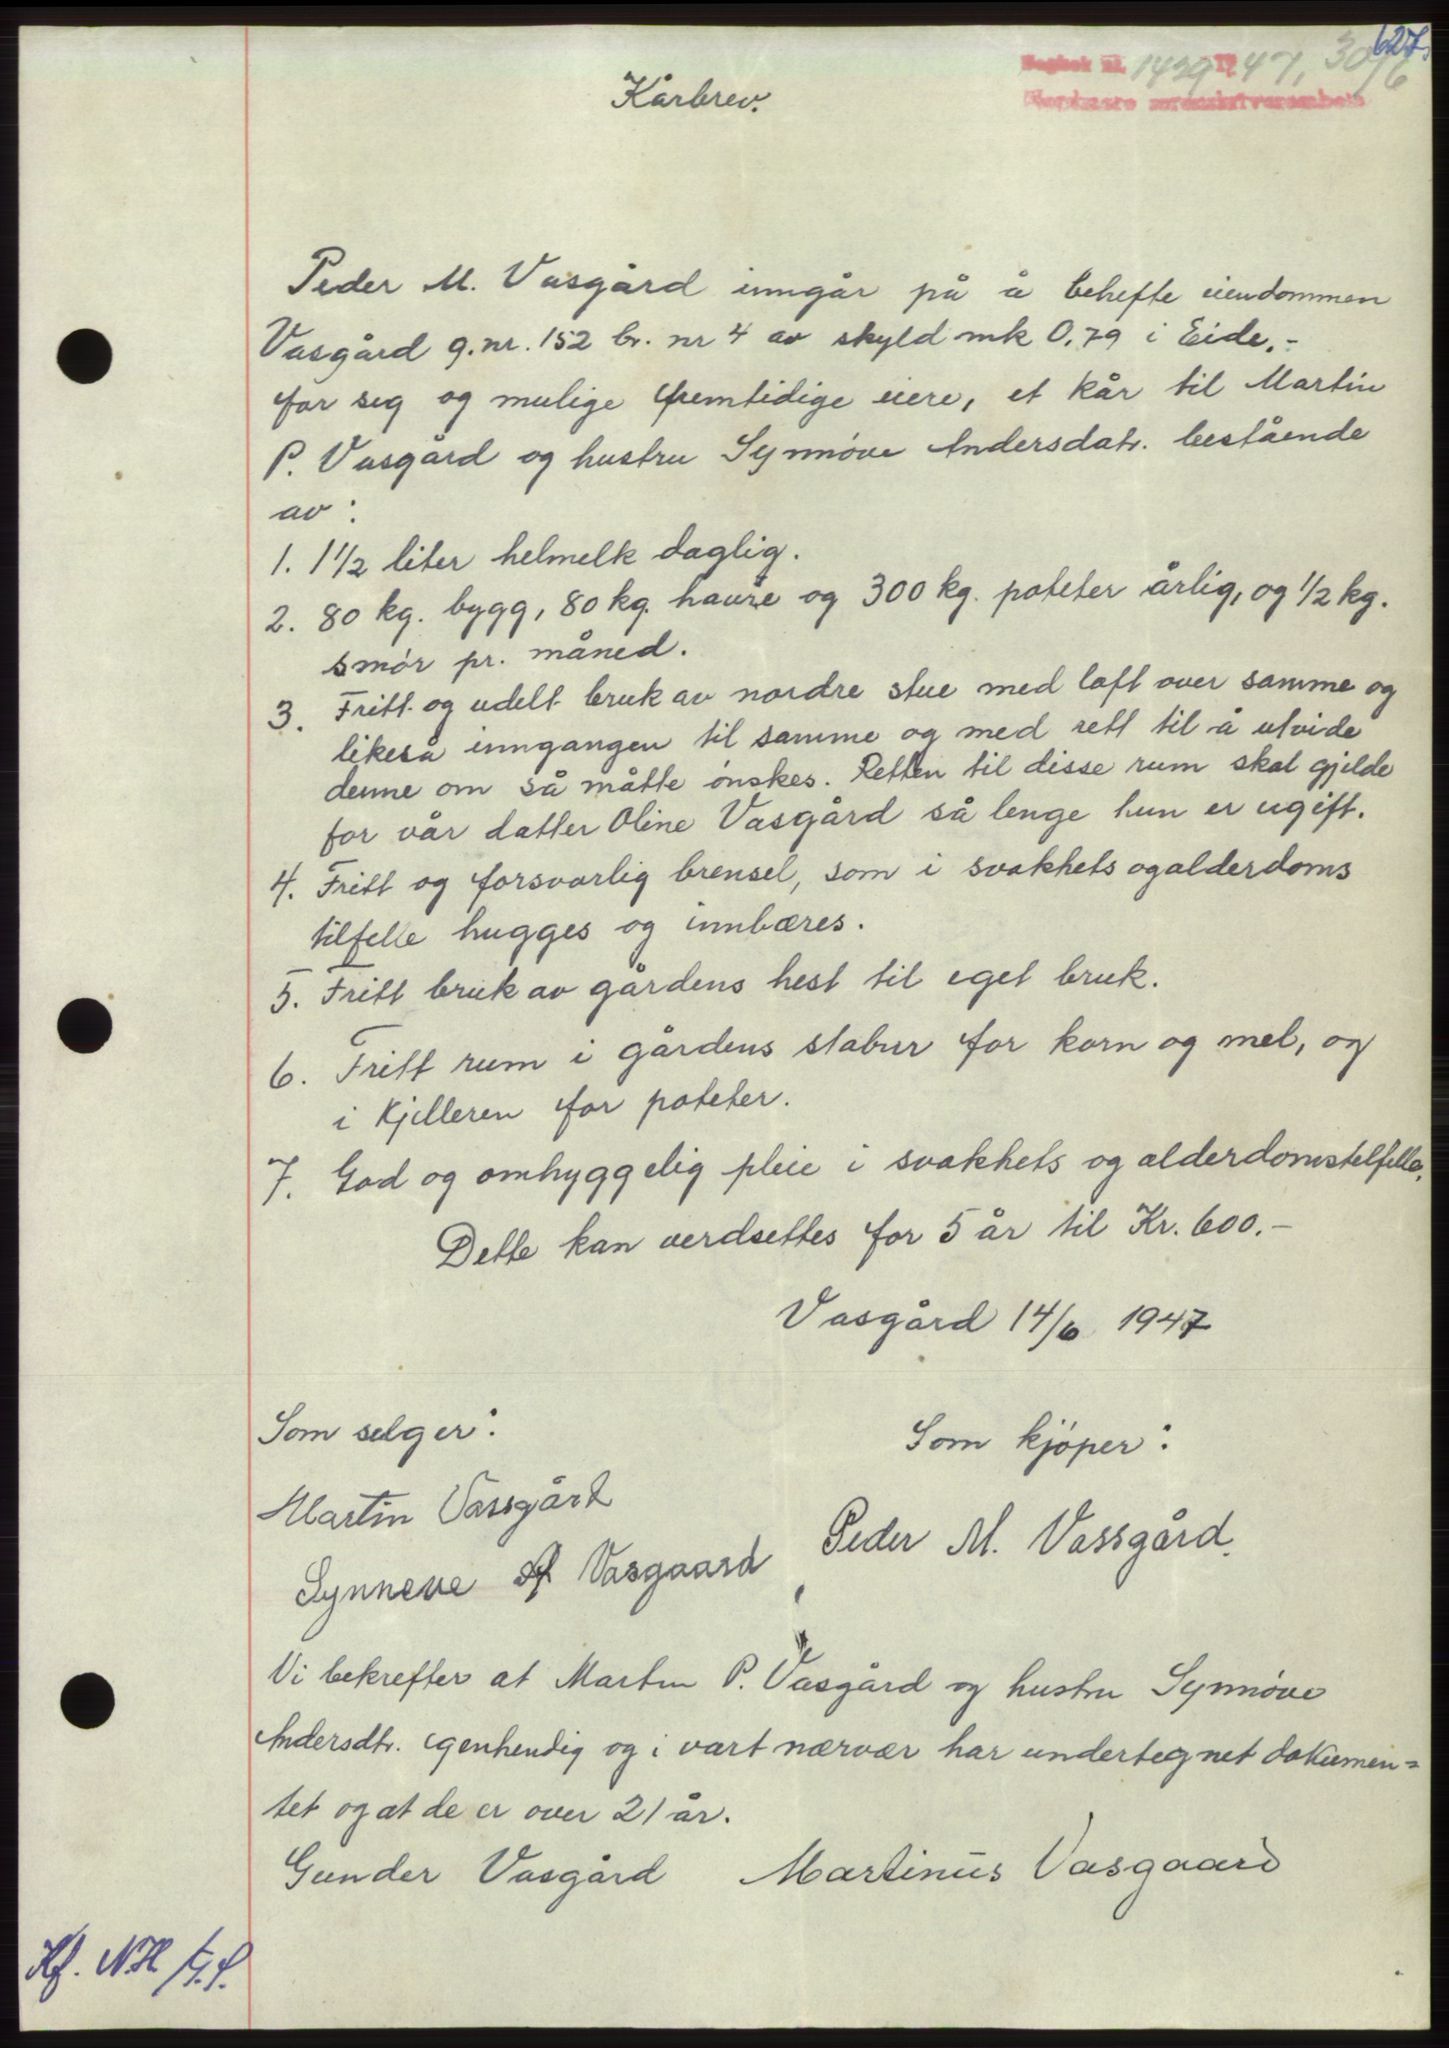 627.
Dagbok nr. 1429 19 47, 30/6
Nordmøre sorenskriverembete
Kårbrev.
Peder M. Vasgård inngår på å behefte eiendommen
Vasgård g.nr. 152 br. nr 4 av skyld mk 0,79 i Eide.-
for seg og mulige fremtidige eiere, et kår til Martin
P. Vasgård og hustru Synnøve Andersdatr. bestående
av:
1. 1 1/2 liter helmelk daglig.
2. 80 kg. bygg, 80 kg. havre og 300 kg. poteter årlig, og 1/2 kg.
smør pr. måned.
3. Fritt og udelt bruk av nordre stue med loft over samme og
likeså inngangen til samme og med rett til å utvide
denne om så måtte ønskes. Retten til disse rum skal gjelde
for vår datter Oline Vasgård så lenge hun er ugift.
4. Fritt og forsvarlig brensel, som i svakhets og alderdoms
tilfelle hugges og innbæres.
5. Fritt bruk av gårdens hest til eget bruk.
6. Fritt rum i gårdens stabur for korn og mel, og
i kjelleren for poteter.
7. God og omhyggelig pleie i svakhets og alderdomstilfelle.
Dette kan verdsettes for 5 år til Kr. 600.-
Vasgård 14/6 1947
Som selger:
Som kjøper:
Martin Vassgård
Peder M. Vassgård.
Synneve A Vasgaard
Vi bekrefter at Martin P. Vasgård og hustru Synnøve
Andersdtr. egenhendig og i vart nærvær har undertegnet dokumen=
tet og at de er over 21 år.
Gunder Vasgård Martinus Vasgaard
Kf. NH /G.S.